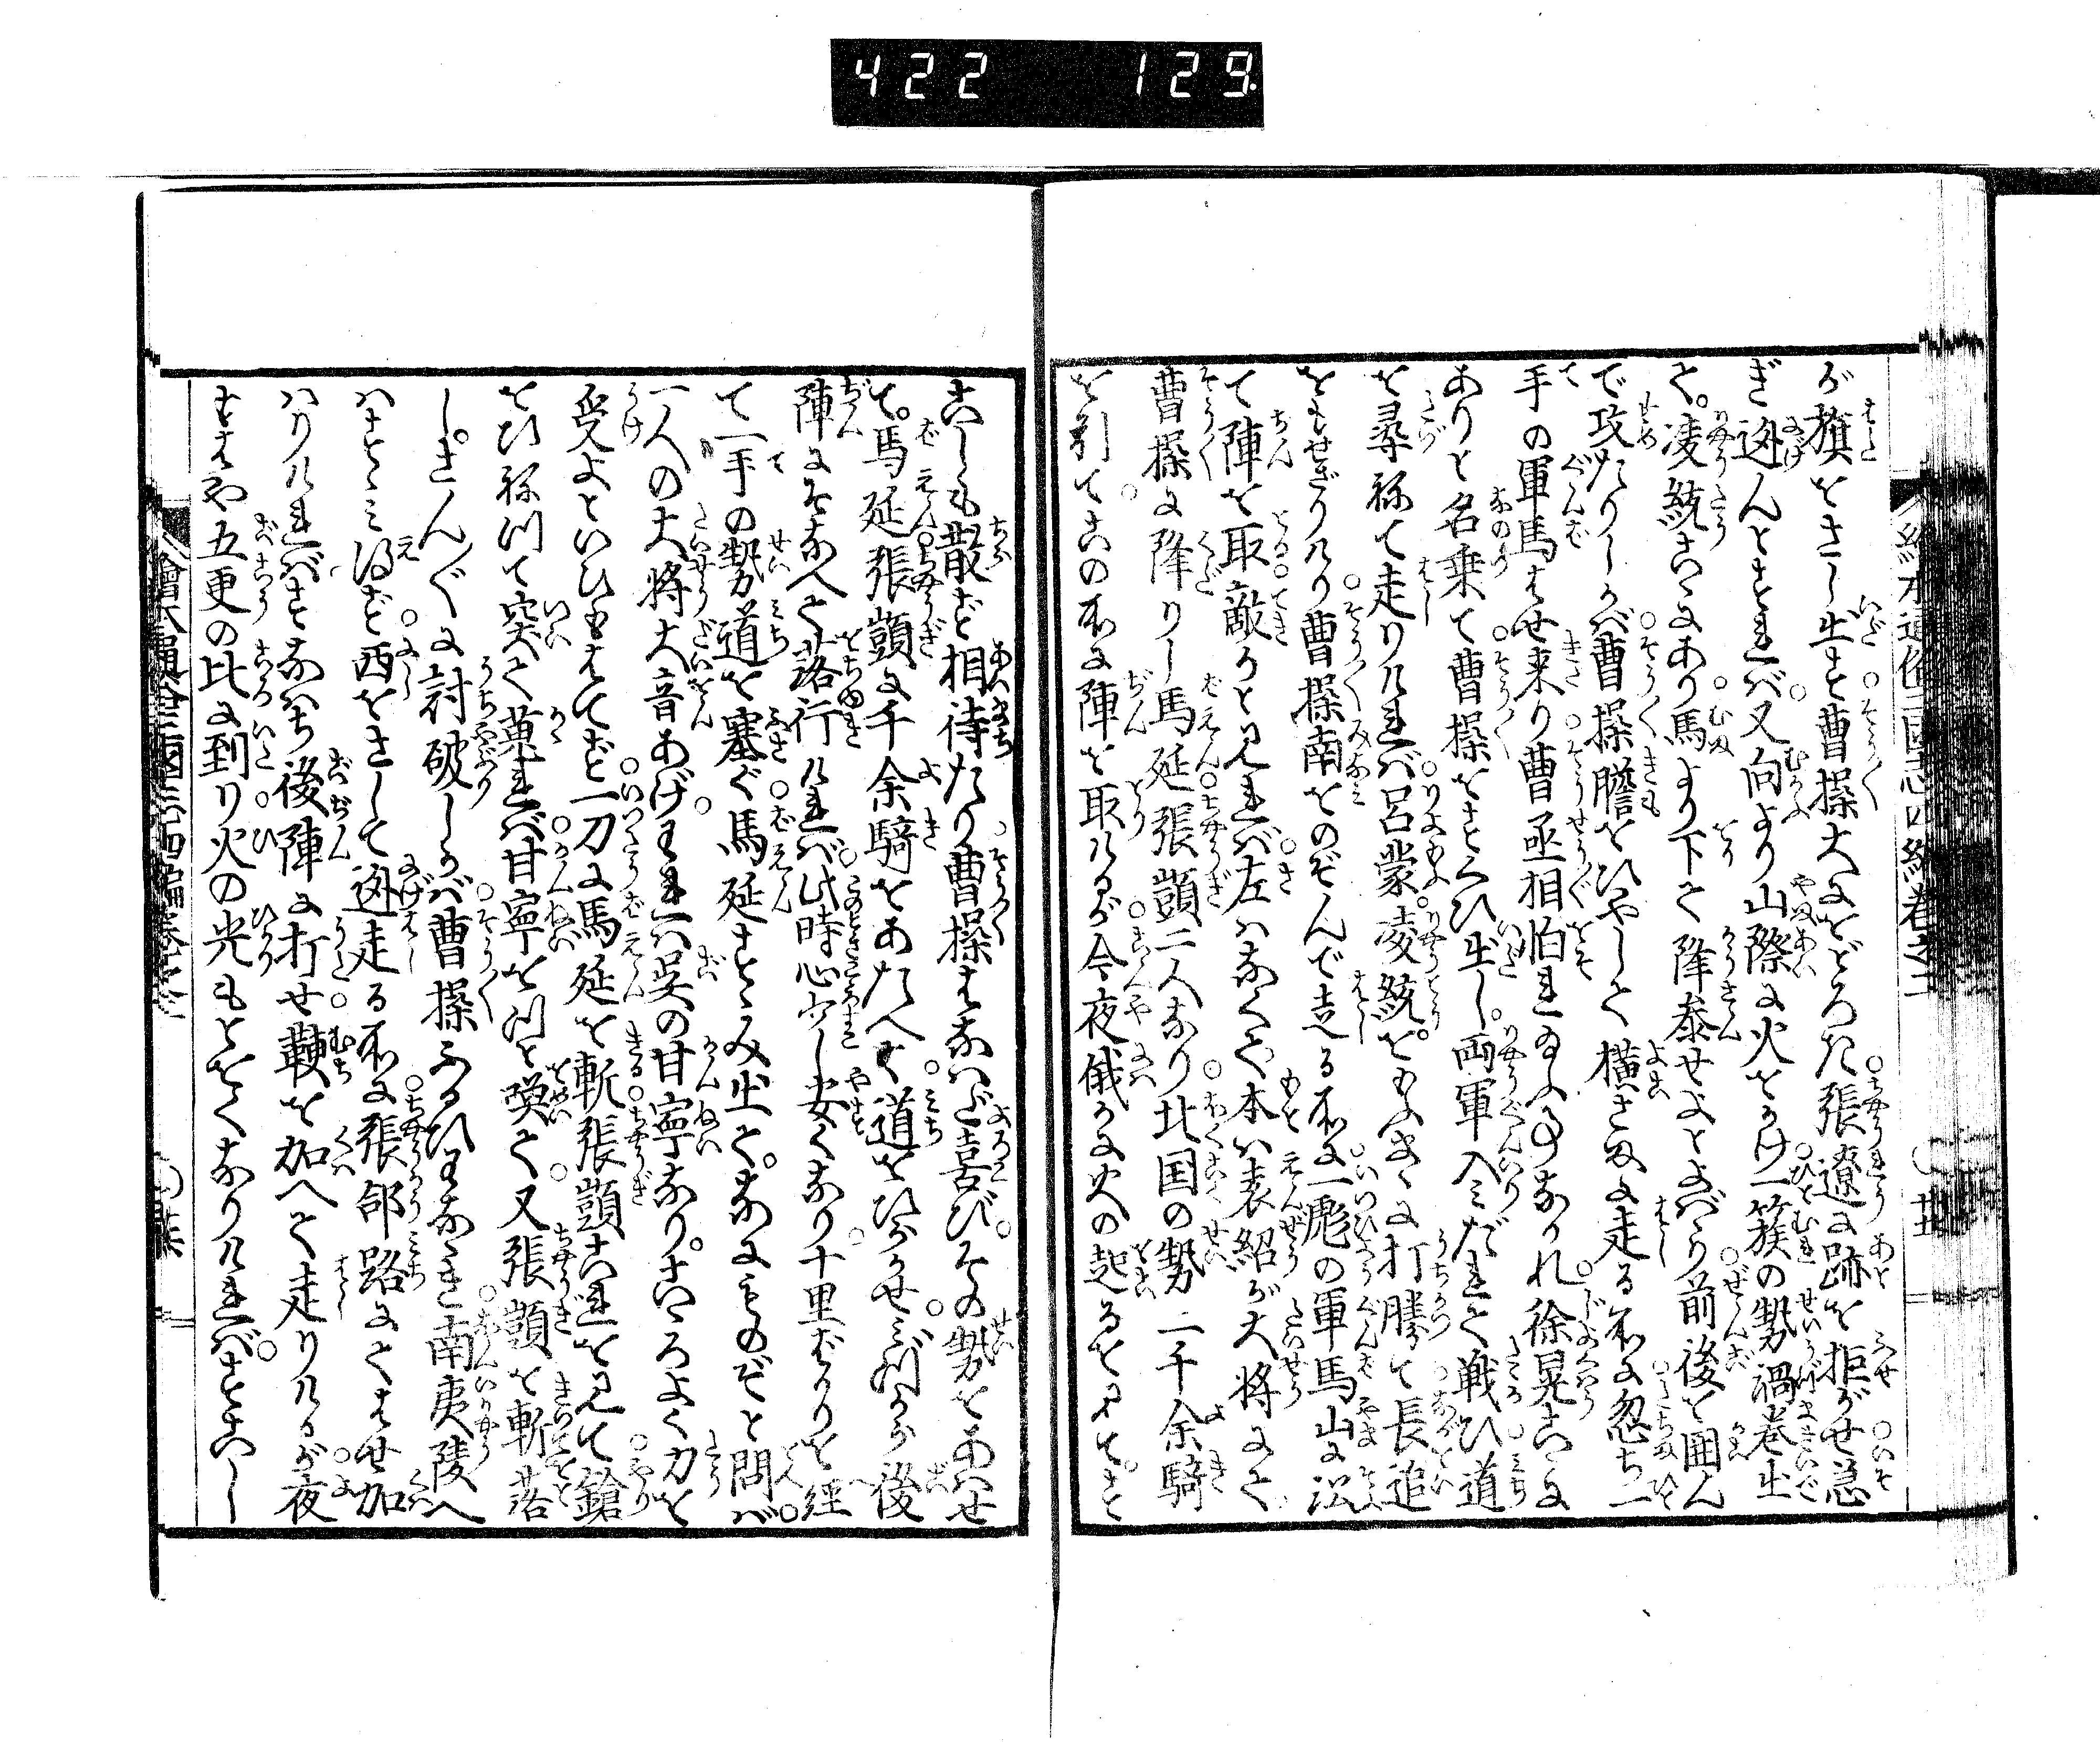 422 129
が旗をさし出す曹操大にをどろき張遼に跡を拒がせ急
ぎ迯んとすれバ又向より山際に火をかけ一簇の勢渦巻出
て凌統こゝにあり馬より下て降参せよとよばゝり前後を囲ん
で攻たりしかバ曹操膽をひやして横さまに走る所に忽ち一
手の軍馬はせ来り曹丞相怕れ給ふ事なかれ徐晃こゝに
ありと名乗て曹操をすくひ出し両軍入ミだれて戦ひ道
を尋ねて走りけれバ呂蒙凌統をもふさゝに打勝て長追
をもせざりけり曹操南をのぞんで走る所に一彪の軍馬山に沿
て陣を取敵かと見れバ左ハなくて本ハ袁紹が大将にて
曹操に降りし馬延張顗二人なり北国の勢二千余騎
を引てこの所に陣を取けるが今夜俄かに火の起るを見てす
こしも散ぜず相待たり曹操はなハだ喜びその勢をあハせ
て馬延張顗に千余騎をあたへて道をひらかせミづから後
陣にそなへて落行けれバ此時心少し安くなり十里ばかりを経
て一手の勢道を塞ぐ馬延すゝみ出てなにものぞと問バ
一人の大将大音あげわれハ呉の甘寧なりこゝろよく力を
受よといひもはてず一刀に馬延を斬張顗これを見て鎗
をひねりて突て蒐れバ甘寧をめと喚て又張顗を斬落
しさん〴〵に討破しかバ曹操ふるひわなゝき南夷陵へ
ハすゝミ得ず西をさして迯走る所に張郃路にてはせ加
ハりけれバすなハち後陣に打せ鞭を加へて走りけるが夜
すはや五更の比に到り火の光もとをくなりけれバすこし